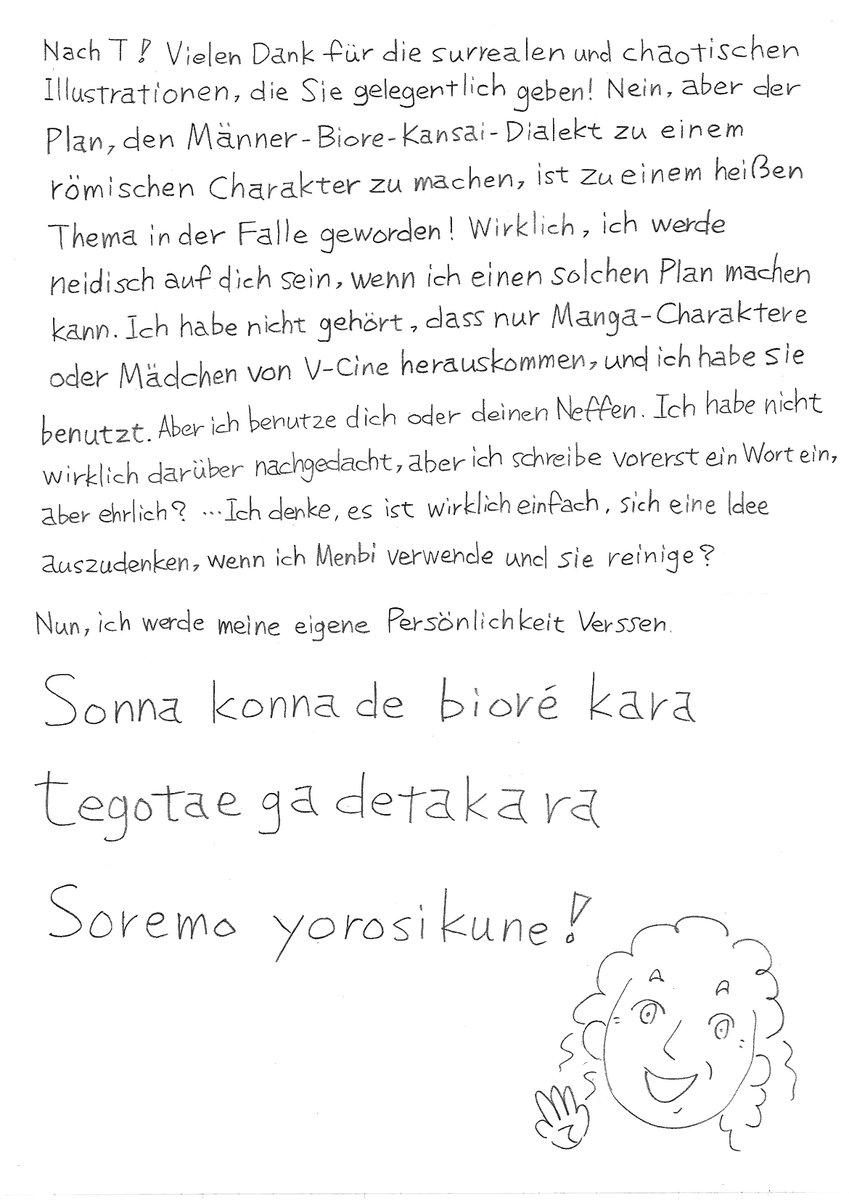 Nach T! Vielen Dank für die surrealen und chaotischen
Illustrationen, die Sie gelegentlich geben! Nein, aber der
Plan, den Männer-Biore-Kansai-Dialekt zu einem
römischen Charakter zu machen, ist zu einem heißen
Thema in der Falle geworden! Wirklich, ich werde
neidisch auf dich sein, wenn ich einen solchen Plan machen
kann. Ich habe nicht gehört, dass nur Manga-Charaktere
oder Mädchen von V-Cine herauskommen, und ich habe sie
benutzt. Aber ich benutze dich oder deinen Neffen. Ich habe nicht
wirklich darüber nachgedacht, aber ich schreibe vorerst ein Wort ein,
aber ehrlich? ...Ich denke, es ist wirklich einfach, sich eine Idee
auszudenken, wenn ich Menbi verwende und sie reinige?
Nun, ich werde meine eigene Persönlichkeit Verssen.
Sonna konna de bioré kara
tegotae ga detakara
Soremo yorosikune!